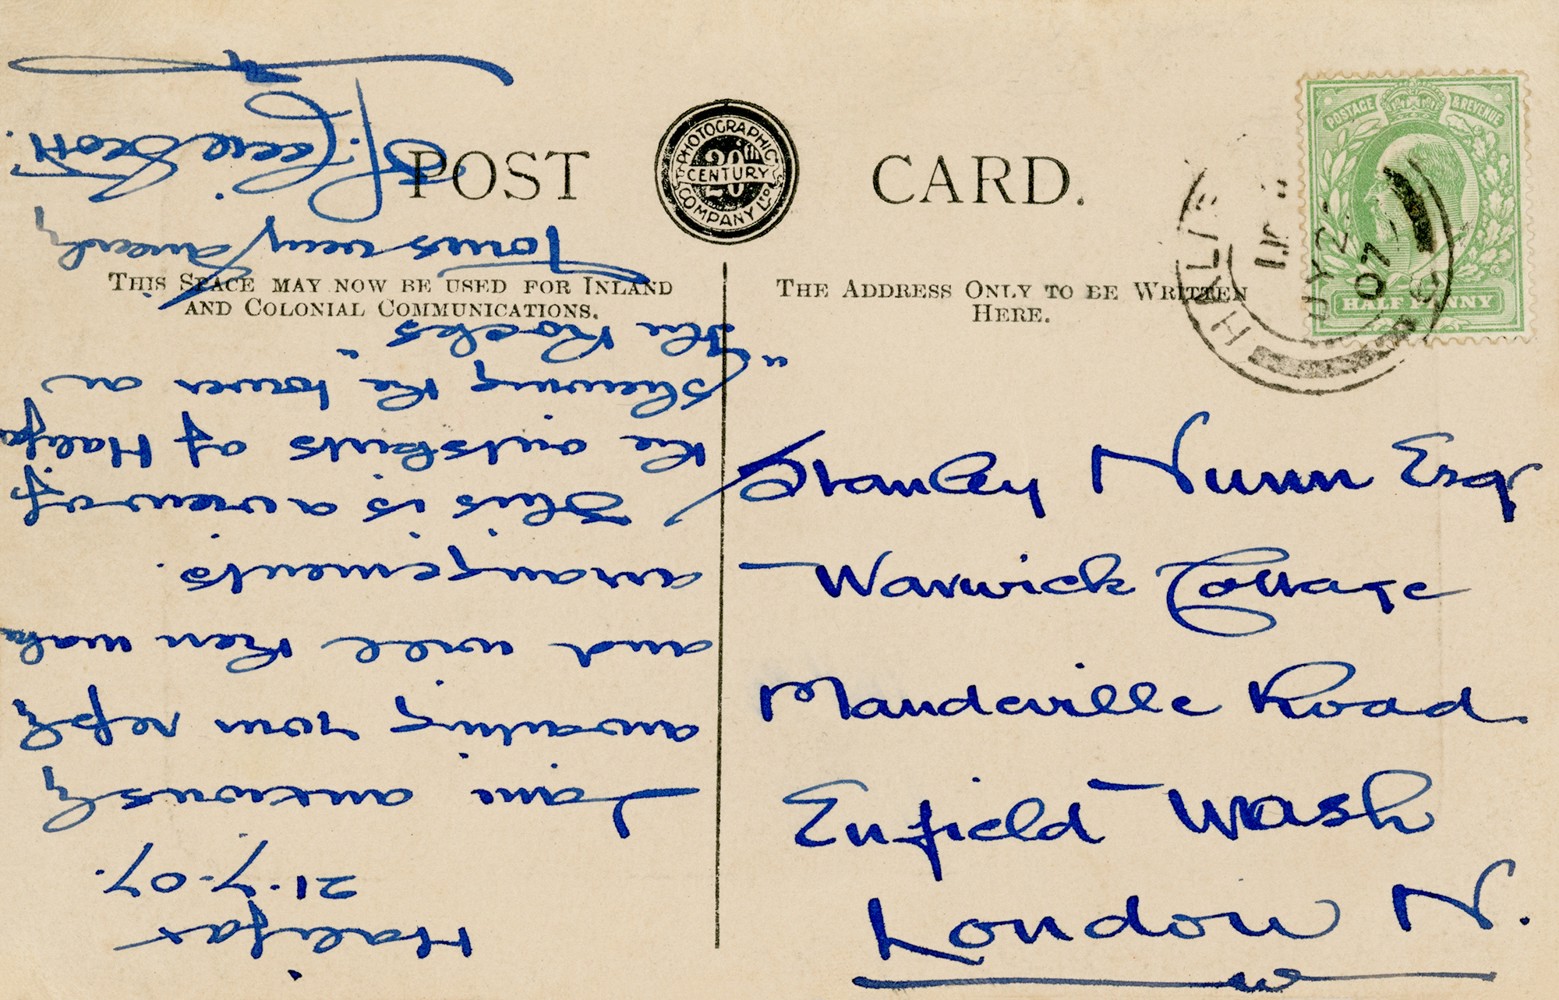 POST CARD.
PHOTOGRAPHIC
20th
CENTURY
COMPANY LTD.
THIS SPACE MAY NOW BE USED FOR INLAND
AND COLONIAL COMMUNICATIONS.
THE ADDRESS ONLY TO BE WRITTEN
HERE.
POSTAGE & REVENUE
HALF PENNY
HALIF
JY 2
07
Halifax
21.7.07.
I am anxiously
awaiting your reply
and will then make
arrangements.
This is a view of
the outskirts of Halifax
shewing the tower on
"The Rocks"
Yours very sincerely
Scott.
Stanley Nunn Esq
Warwick Cottage
Mandeville Road
Enfield Wash
London N.